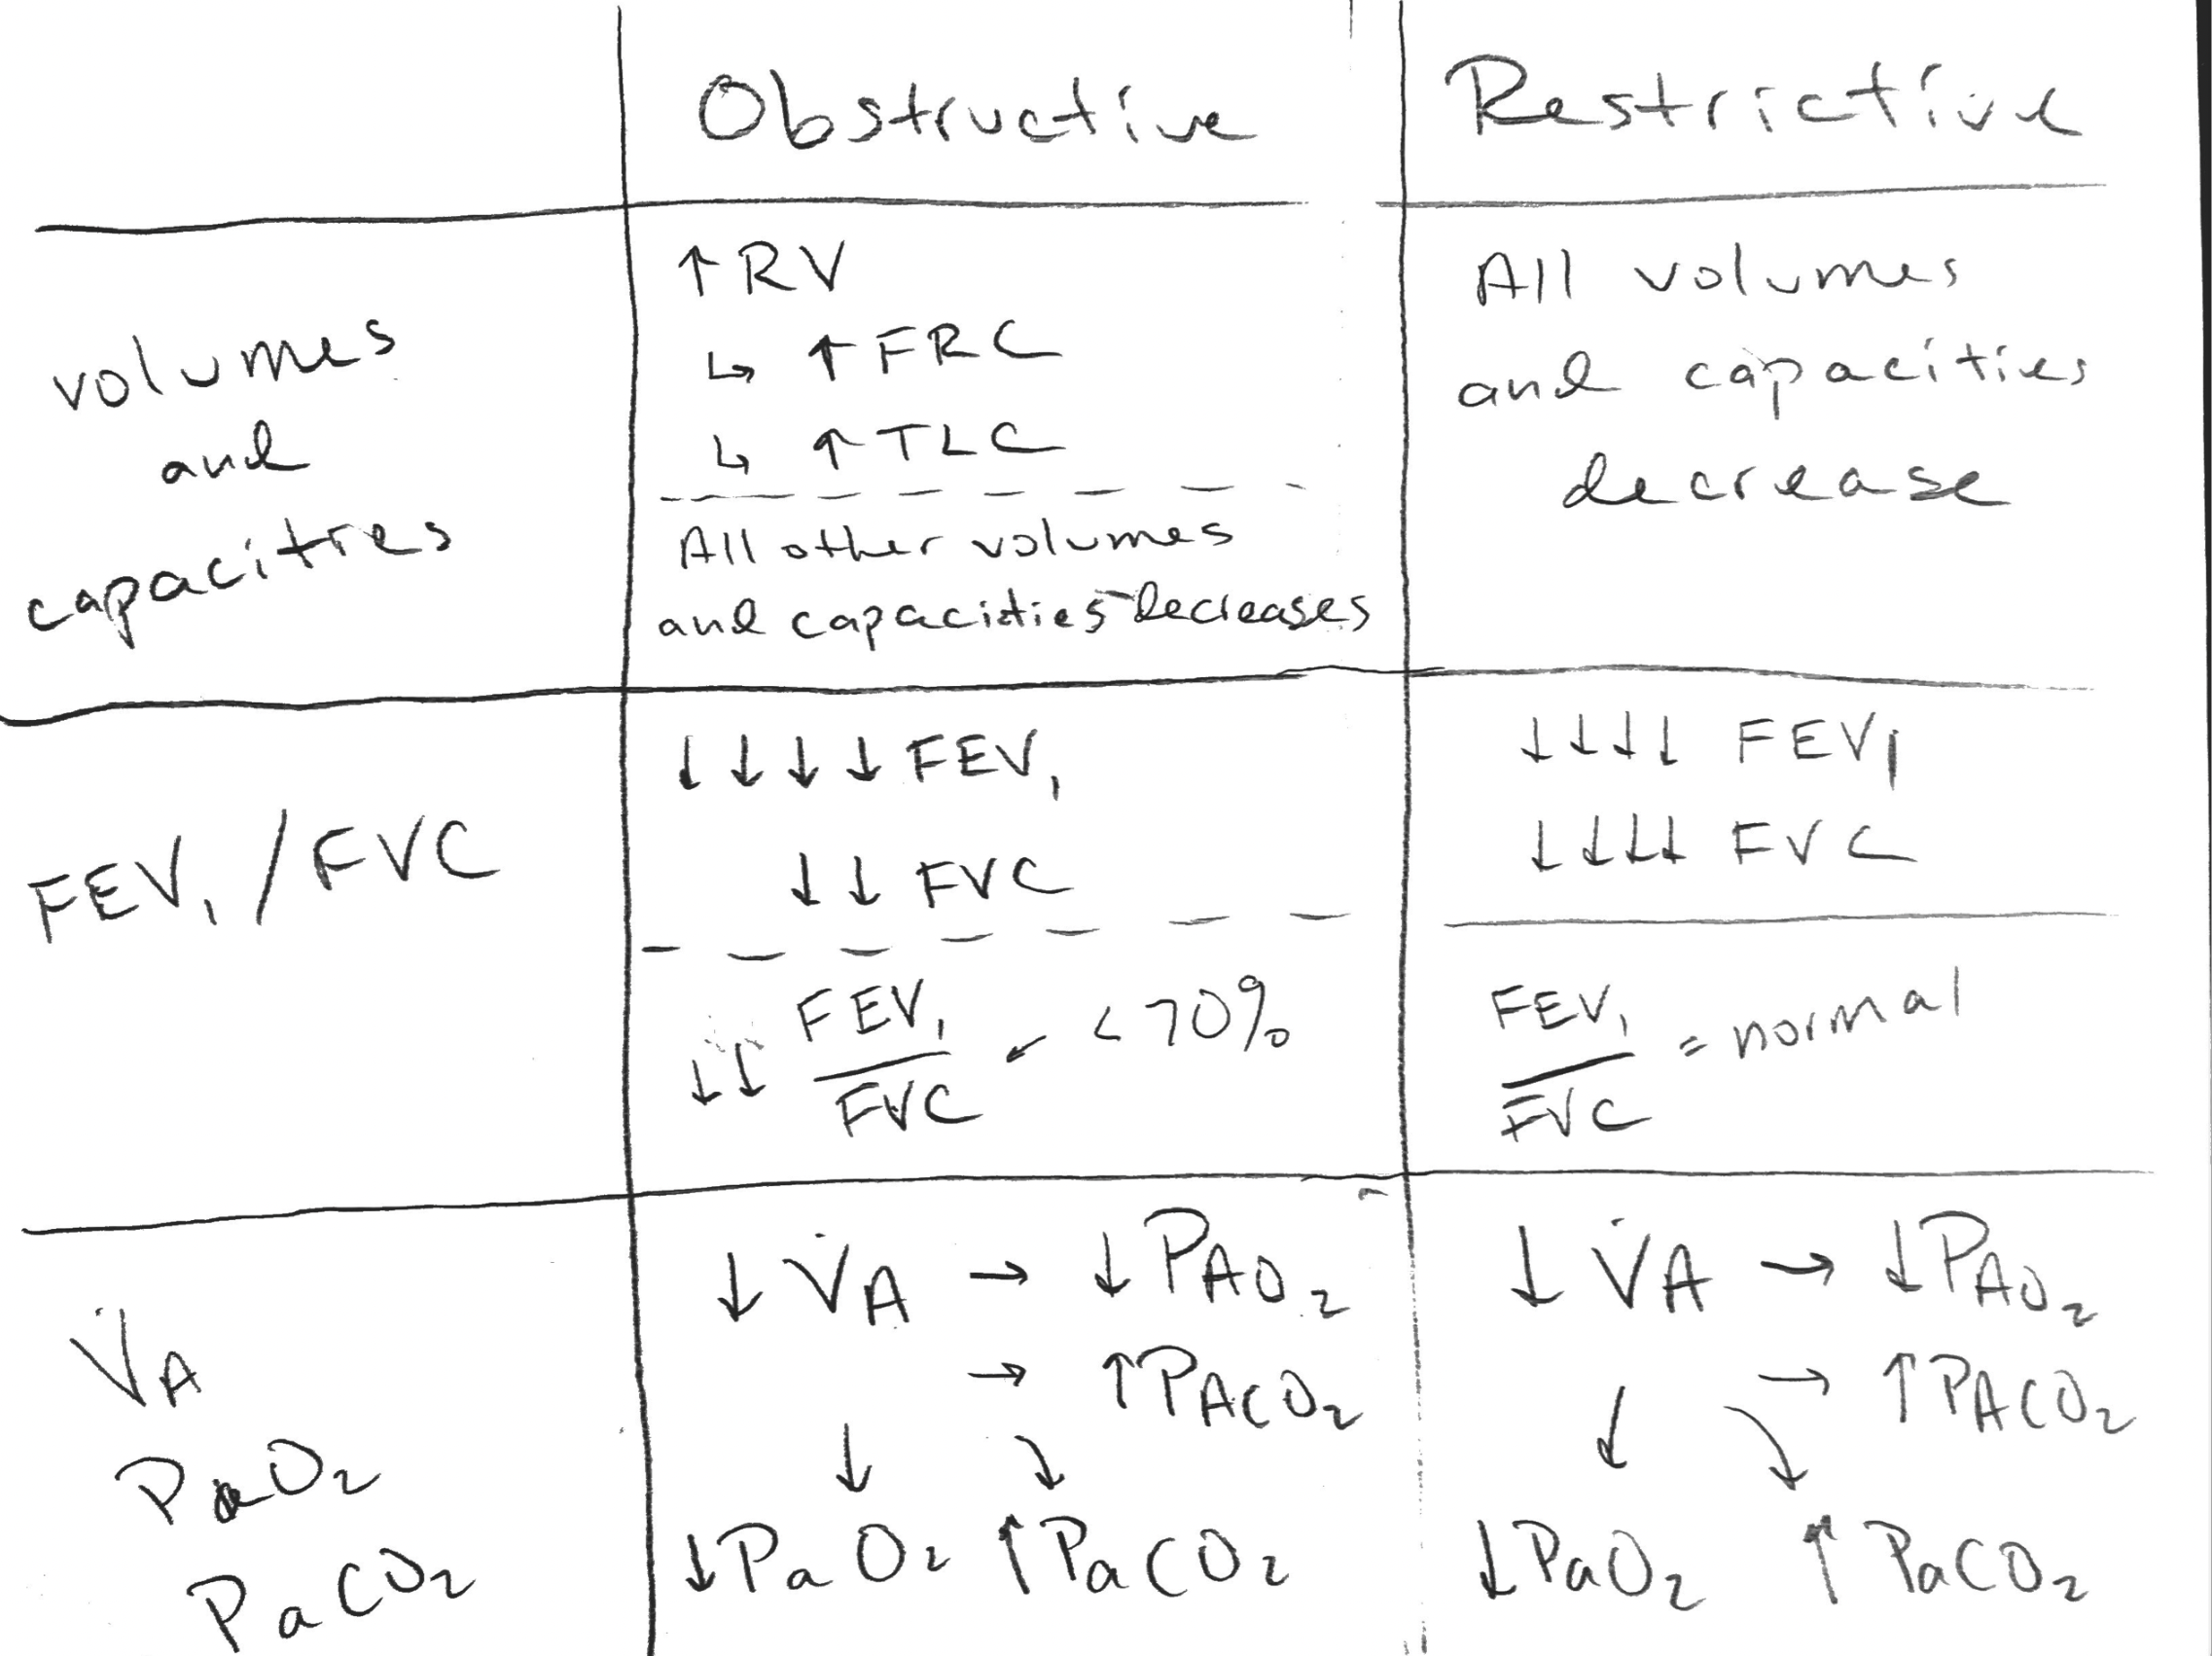 Obstructive
Restrictive
volumes
and
capacities
↑RV
↳ ↑FRC
↳ ↑TLC
All other volumes
and capacities decreases
All volumes
and capacities
decrease
FEV₁/FVC
↓↓↓↓FEV₁
↓↓FVC
↓↓ FEV₁/FVC ↙ <70%
↓↓↓↓ FEV₁
↓↓↓↓ FVC
FEV₁/FVC = normal
V̇A
PaO₂
PaCO₂
↓V̇A → ↓PAO₂
→ ↑PACO₂
↓ ↘
↓PaO₂ ↑PaCO₂
↓V̇A → ↓PAO₂
→ ↑PACO₂
↓ ↘
↓PaO₂ ↑PaCO₂